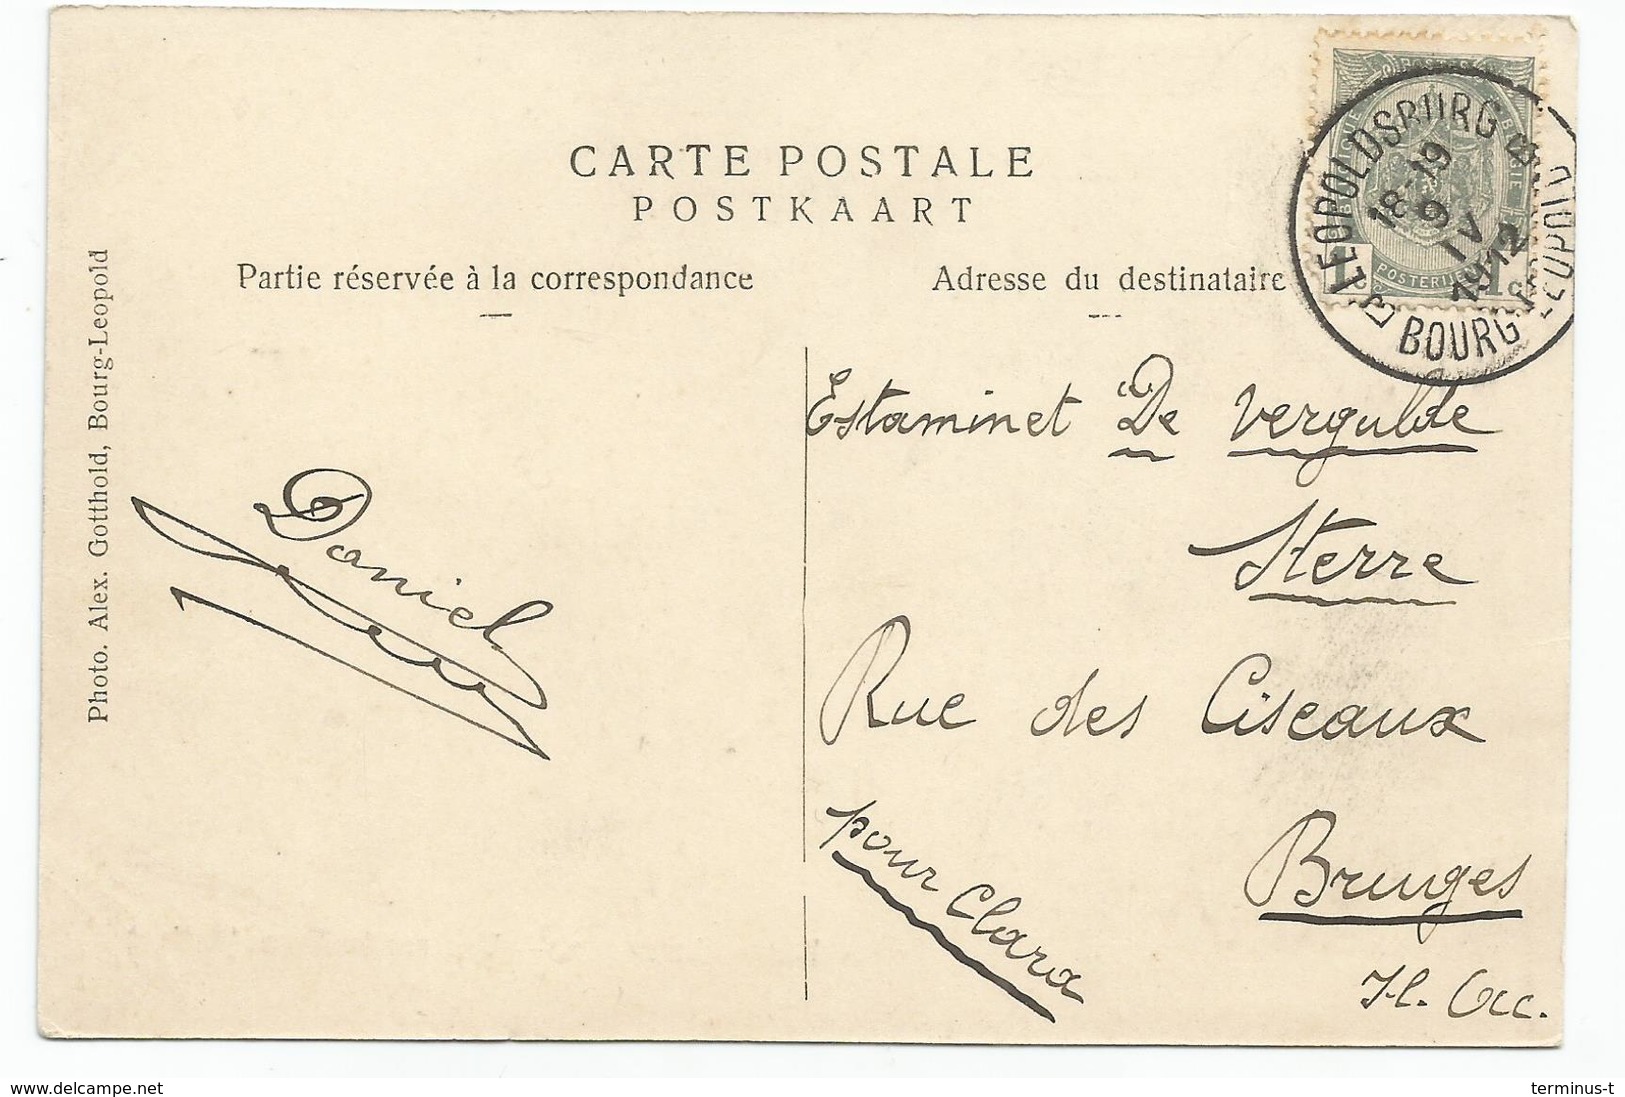 CARTE POSTALE
POSTKAART
Partie réservée à la correspondance
Adresse du destinataire
POSTES
POSTERIJEN
LEOPOLDSBURG
18-19
9
IV
1912
BOURG-LEOPOLD
Photo. Alex. Gotthold, Bourg-Leopold
Daniel
Estaminet De Vergulde
Sterre
Rue des Ciseaux
Bruges
Fl. Occ.
pour Clara
www.delcampe.net
terminus-t